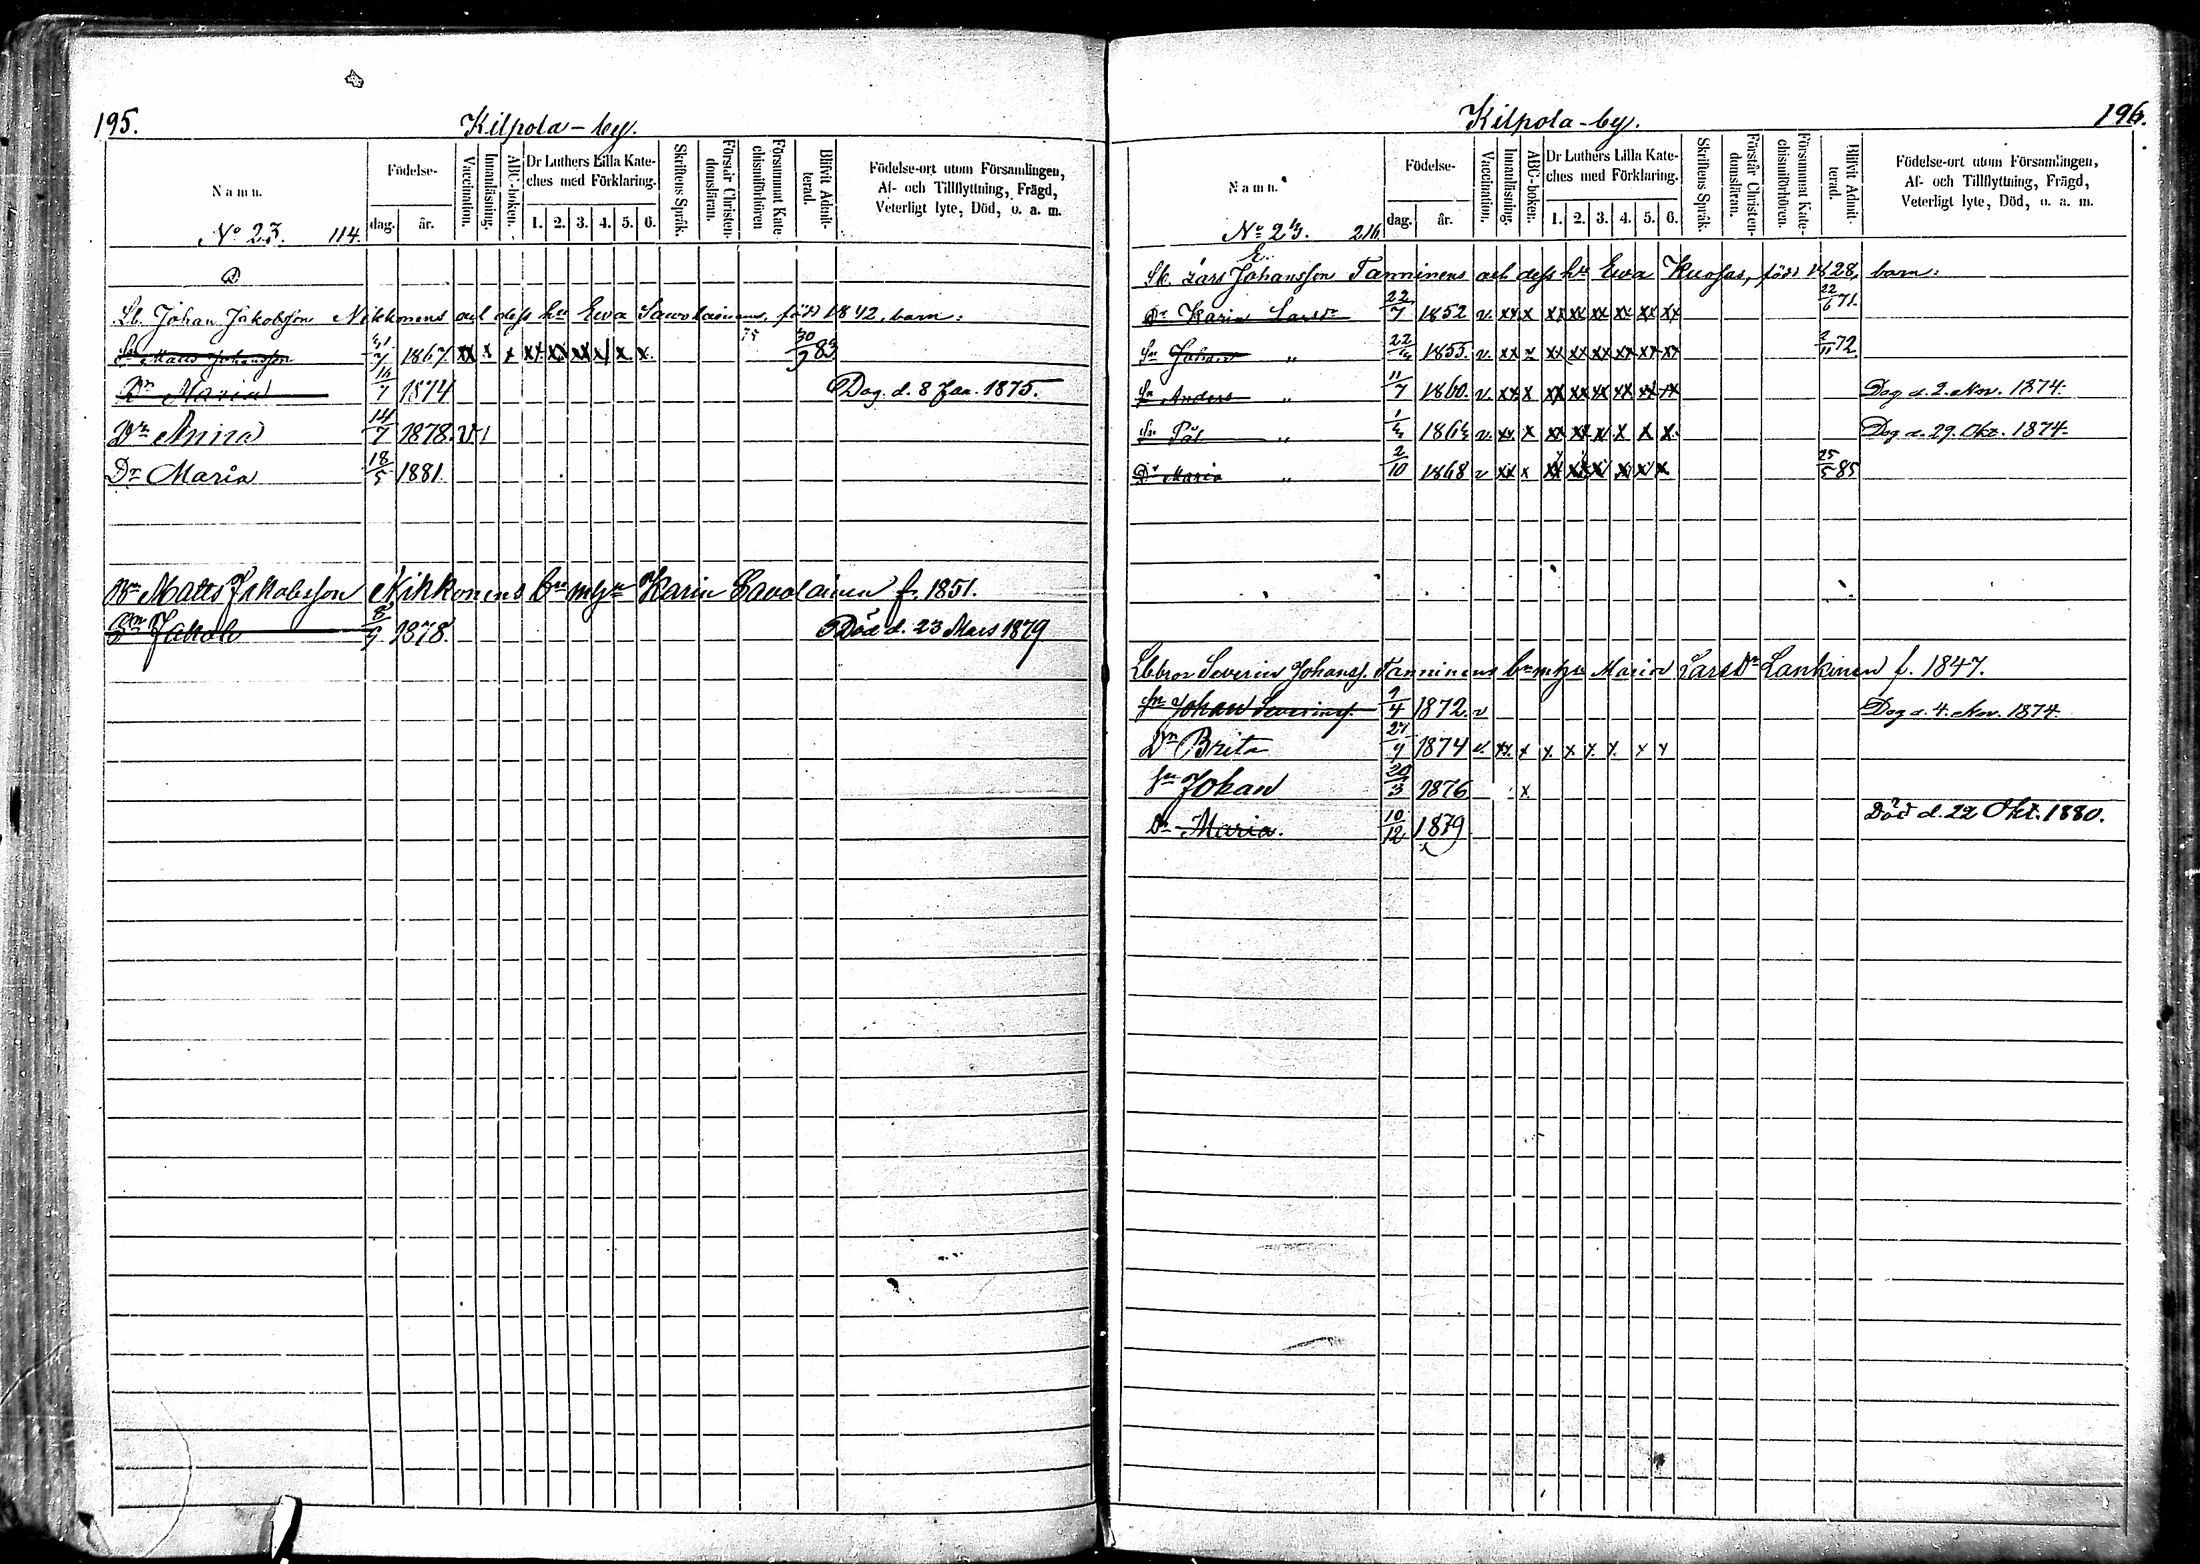 195.
Kilpola-by.
Namn.
Födelse-
dag.
år.
Vaccination.
Innanläsning.
ABC-boken.
Dr Luthers Lilla Kate-
ches med Förklaring.
1. 2. 3. 4. 5. 6.
Skriftens Språk.
Förstår Christen-
domsläran.
Försummat Kate-
chismiförhören
Blifvit Admit-
terad.
Födelse-ort utom Församlingen,
Af- och Tillflyttning, Frägd,
Veterligt lyte, Död, o. a. m.
No 23. 114.
D
Lb. Johan Jakobsson Nikkonens och dess hu Ewa Sawolainens, född 1842, barn:
Sn Matts Johansson 1867. xx x x xx xx xx x x x 75 30/9 83
Dr Maria 16/7 1874 Dog d. 8 Jan. 1875.
Dr Anna 14/7 1878. v 1
Dr Maria 18/5 1881.
Matts Jakobsson Nikkonens bn m hu Karin Savolainen f. 1851.
Sn Jakob 8/9 1878. Död d. 23 Mars 1879
196.
Kilpola-by.
Namn.
Födelse-
dag.
år.
Vaccination.
Innanläsning.
ABC-boken.
Dr Luthers Lilla Kate-
ches med Förklaring.
1. 2. 3. 4. 5. 6.
Skriftens Språk.
Förstår Christen-
domsläran.
Försummat Kate-
chismiförhören.
Blifvit Admit-
terad.
Födelse-ort utom Församlingen,
Af- och Tillflyttning, Frägd,
Veterligt lyte, Död, o. a. m.
No 23. 216.
E.
Lars Johansson Tanninens och dess hu Ewa Kuosas, född 1828, barn:
Dr Karin Larsdr 22/7 1852 v. xx x xx xx xx xx xx xx 22/6 71.
Sn Johan " 1855. v. xx x xx xx xx xx xx xx 2/11 72
Sn Anders " 11/7 1860. v. xx x xx xx xx xx xx xx Dog d. 2. Nov. 1874.
Sn Pål " v. xx x xx xx x x x x. Dog d. 29. Okt. 1874.
Dr Maria " 2/10 1868 v xx x xx xx x x x x 25/5 85
Severin Johanss. Tanninens bn m hu Maria Larsdr Lankinen f. 1847.
Sn Johan Severinss. 9/4 1872. v Dog d. 4. Nov. 1874.
Dr Brita 27/9 1874 v. xx. x x x x x x x
Sn Johan 20/3 1876 x
Dr Maria. 10/12 1879 Död d. 22 Okt. 1880.